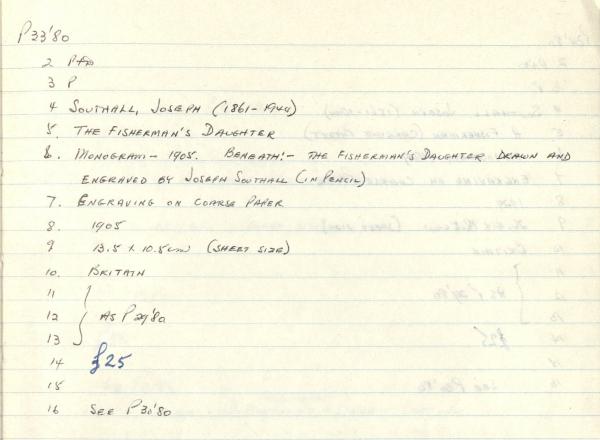 P33'80
2 P
3 P
4 SOUTHALL, JOSEPH (1861-1944)
5. THE FISHERMAN'S DAUGHTER
6. MONOGRAM - 1905. BENEATH:- THE FISHERMAN'S DAUGHTER DRAWN AND
ENGRAVED BY JOSEPH SOUTHALL (IN PENCIL)
7. ENGRAVING ON COARSE PAPER
8. 1905
9 13.5 X 10.5cm (SHEET SIZE)
10. BRITAIN
11
12 AS P29'80
13
14 £25
15
16 SEE P30'80